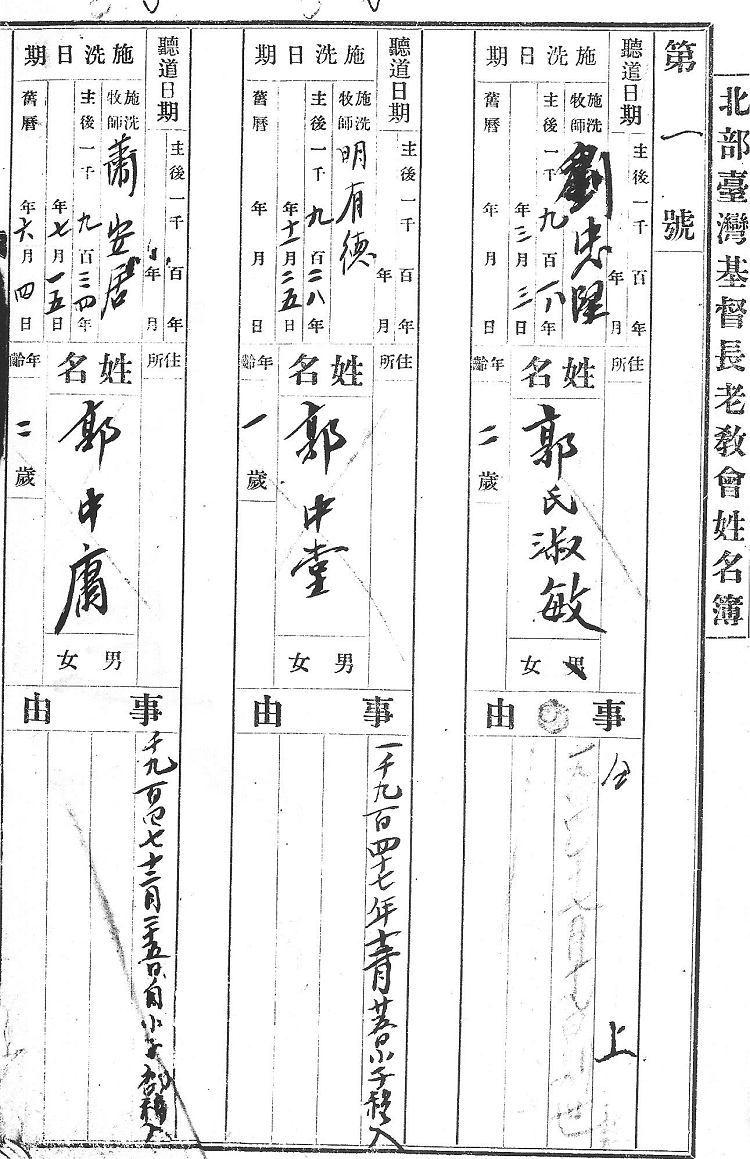 北部臺灣基督長老敎會姓名簿
第一號
聽道日期
主後一千 百 年
年 月
施洗日期
施洗牧師 劉忠堅
主後一千九百一八年
年三月三日
舊曆 年 月 日
住所
姓名
郭氏淑敏
年齡
二歲
男 女
事由
仝 上
聽道日期
主後一千 百 年
年 月
施洗日期
施洗牧師 明有德
主後一千九百二八年
年十一月二五日
舊曆 年 月 日
住所
姓名
郭中堂
年齡
一歲
男 女
事由
一千九百四十七年十二月廿五日小子移入
聽道日期
主後一千 百 年
年 月
施洗日期
施洗牧師 蕭安居
主後一千九百三四年
年七月一五日
舊曆 年六月四日
住所
姓名
郭中庸
年齡
二歲
男 女
事由
千九百四七十二月二十五日自小子部移入